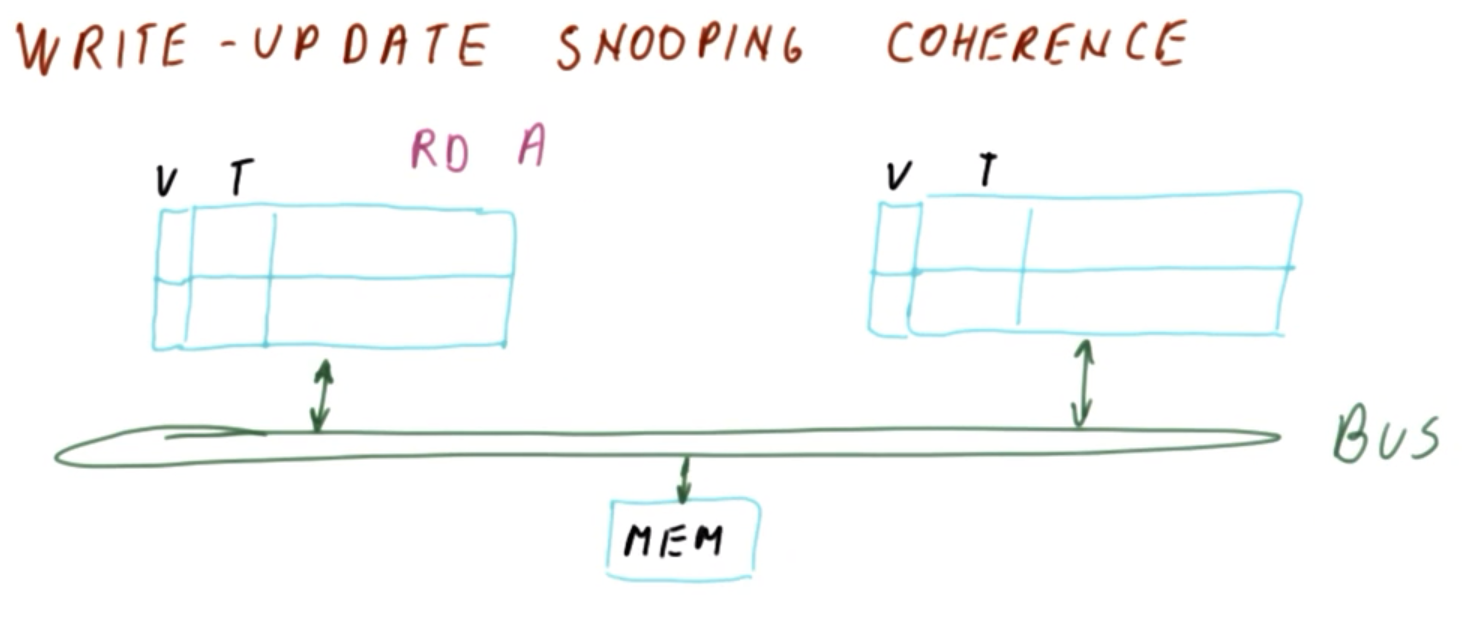 WRITE-UPDATE SNOOPING COHERENCE
RD A
V T
V T
BUS
MEM